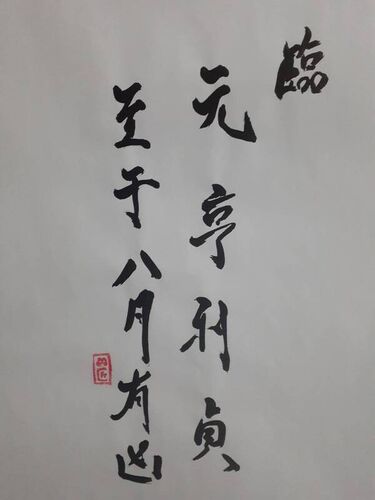 臨
元亨利貞
至于八月有凶